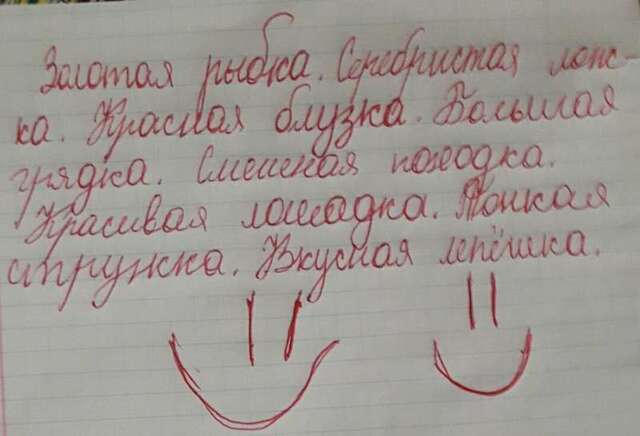 Золотая рыбка. Серебристая
ка. Красная блузка. Большая
грядка. Смешная походка.
Красивая лошадка. Тонкая
стружка. Вкусная лепёшка.